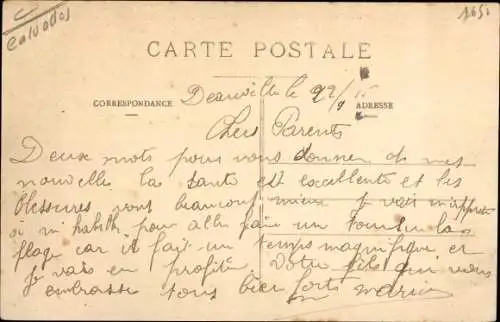 C
Calvados
1651
CARTE POSTALE
CORRESPONDANCE
ADRESSE
Deauville le 22/9 15
Chers Parents
Deux mots pour vous donner de mes
nouvelle la santé est excellente et les
blessures vont beaucoup mieux Je vais m'appreter
ou m'habille pour aller faire un tour sur la
plage car il fait un temps magnifique et
Je vais en profiter. Votre fils qui vous
embrasse tous bien fort